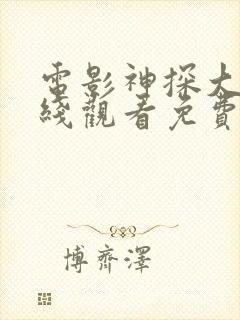 電影神探大
綫觀看免費
博齊澤